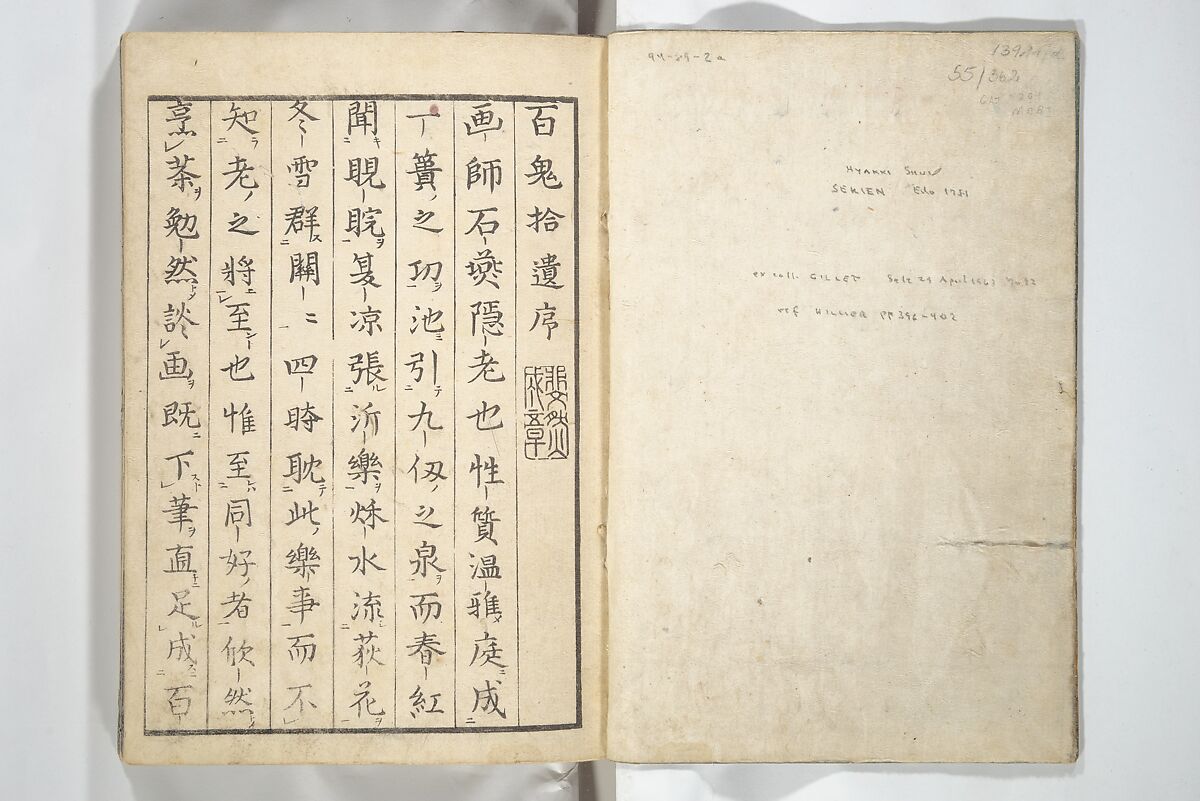 94-89-2a
55/362
HYAKKI SHUI
SEKIEN Edo 1781
ex coll. GILLET Sale 24 April
ref HILLIER PP 396-402
百鬼拾遺序
斐然
成章
画師石燕隠老也性質温雅庭成
一簣之功池引九仭之泉而春紅
聞睍睆夏凉張泝樂穌水流荻花
冬雪群關〻四時耽此樂事而不
知老之將至也惟至同好者欣然
烹茶勉然談画既下筆直足成百